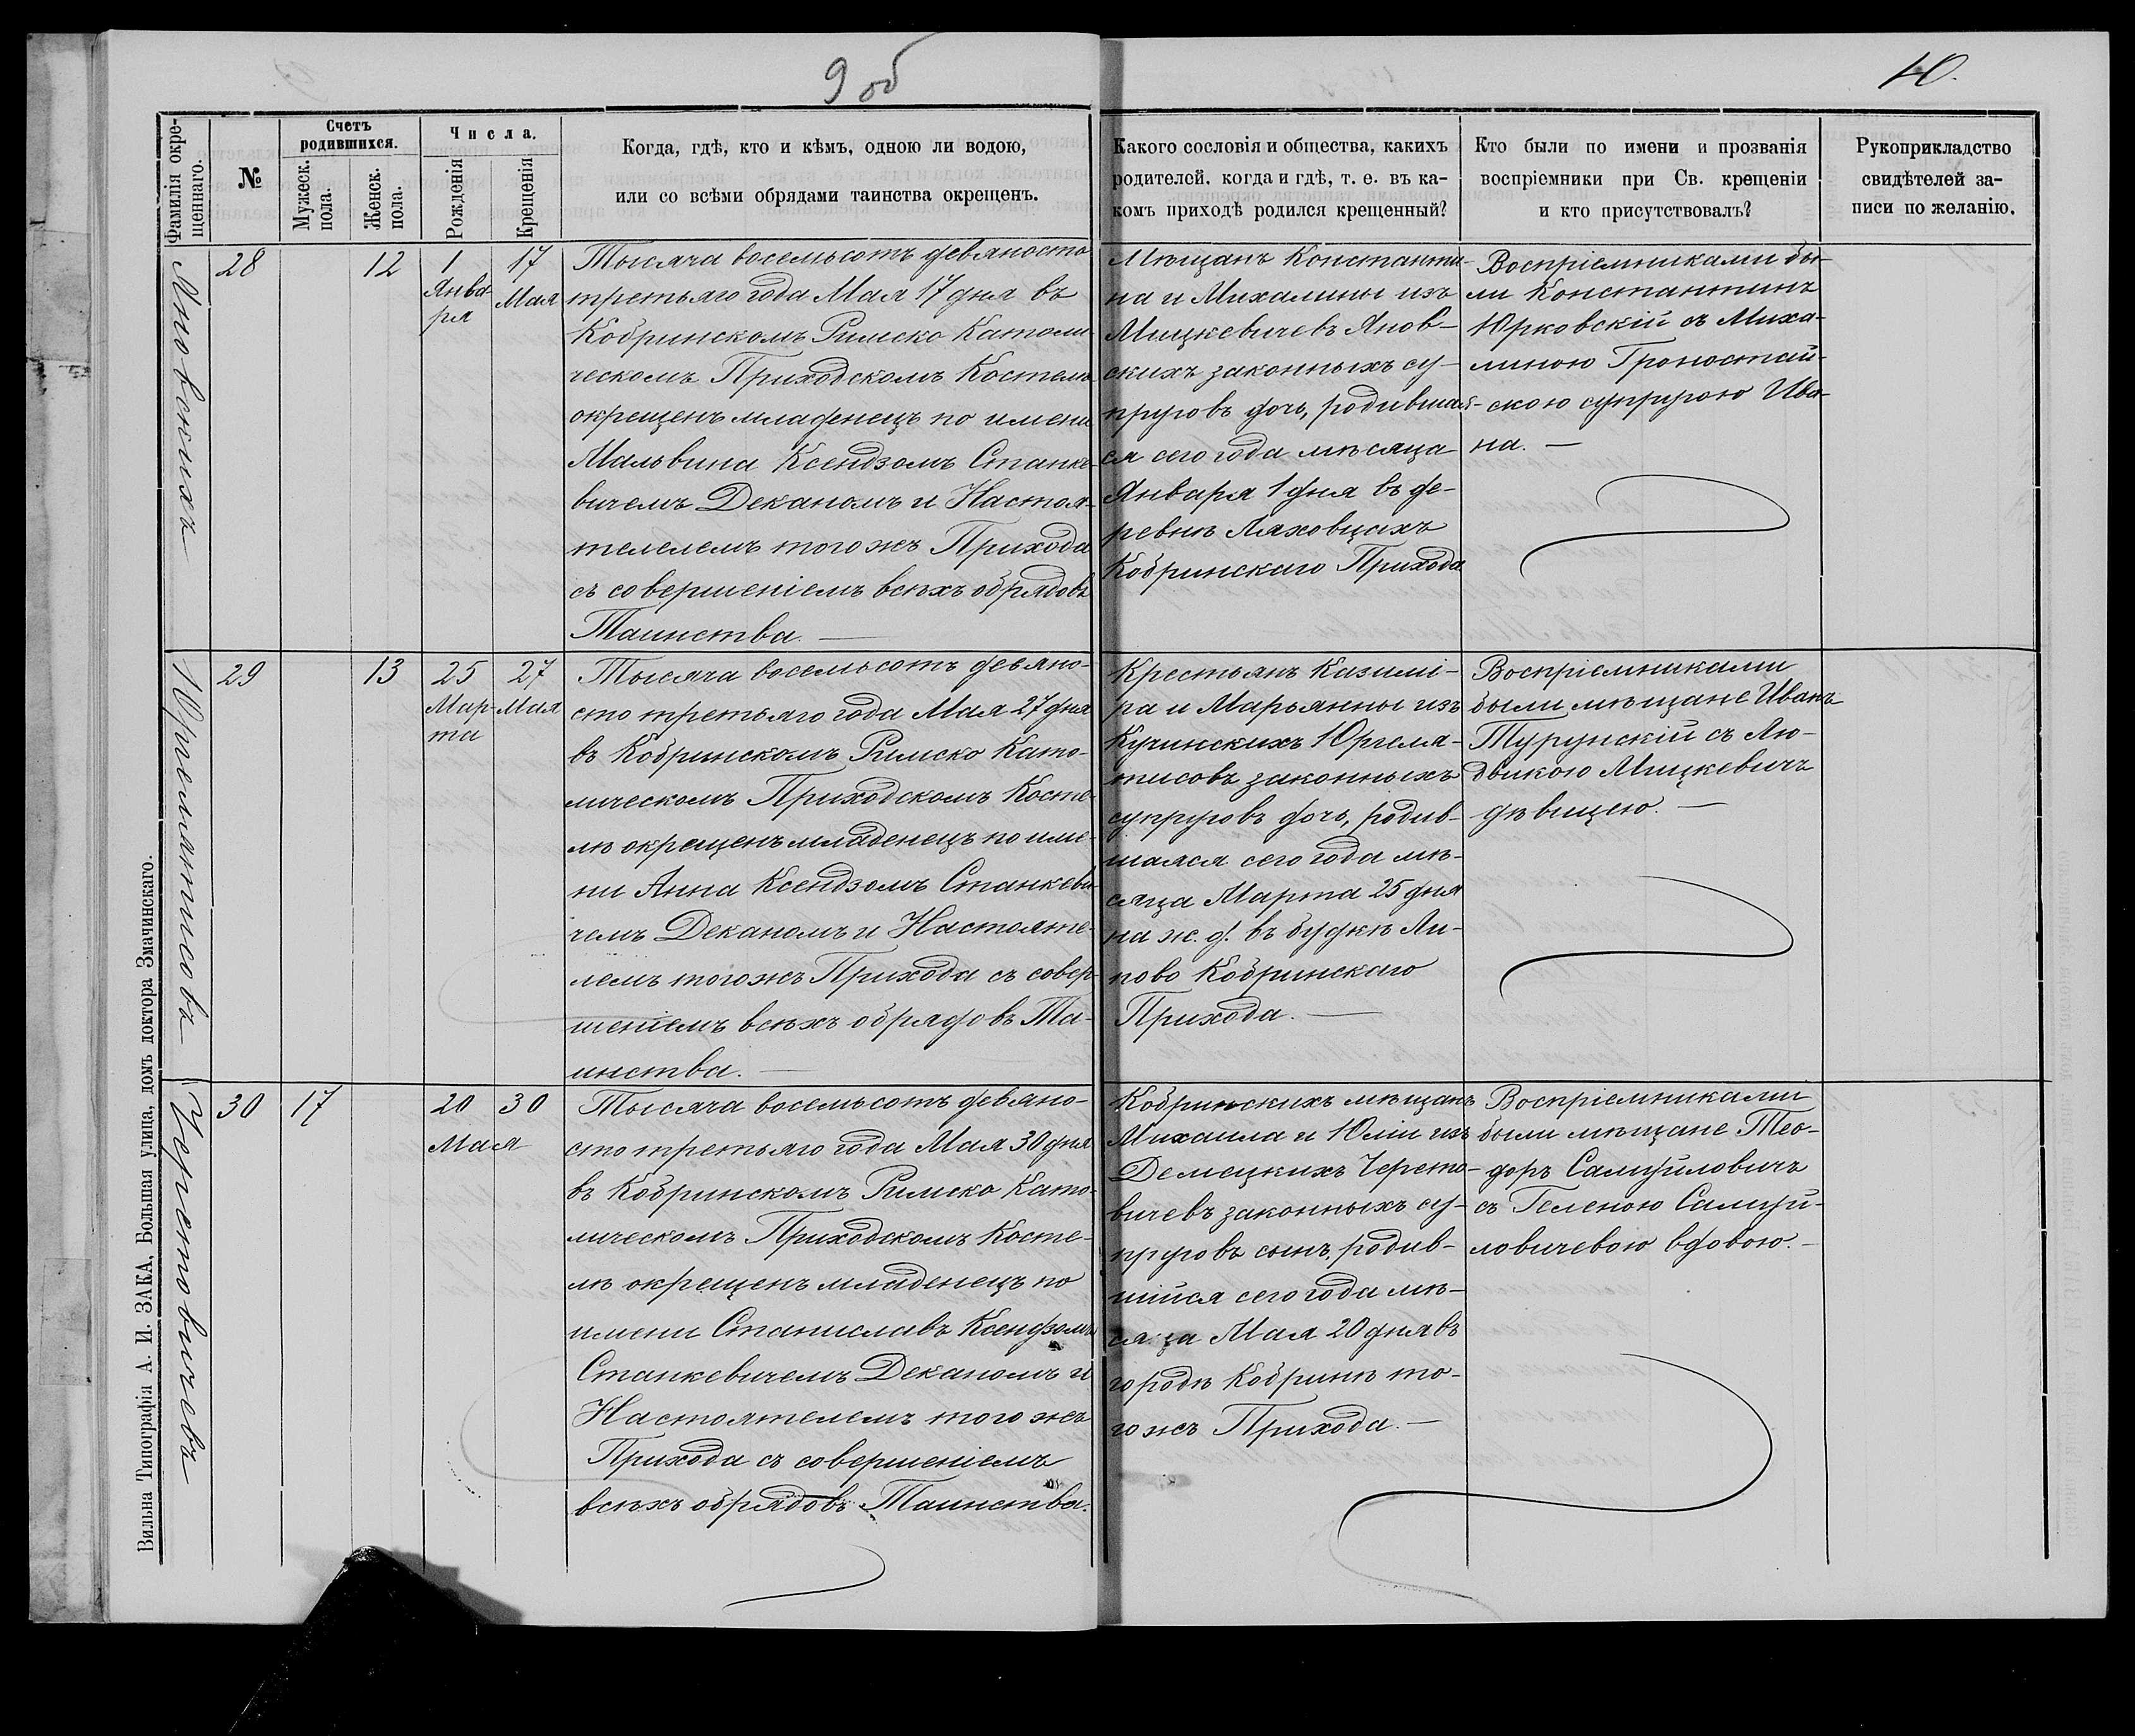 9 об
10.
Фамилія окре-
щеннаго.
№
Счетъ
родившихся.
Мужеск.
пола.
Женск.
пола.
Числа.
Рожденія
Крещенія
Когда, гдѣ, кто и кѣмъ, одною ли водою,
или со всѣми обрядами таинства окрещенъ.
Какого сословія и общества, какихъ
родителей, когда и гдѣ, т. е. въ ка-
комъ приходѣ родился крещенный?
Кто были по имени и прозванія
воспріемники при Св. крещеніи
и кто присутствовалъ?
Рукоприкладство
свидѣтелей за-
писи по желанію.
Яновскихъ
28
12
1
Янва-
ря
17
Мая
Тысяча восемьсотъ девяносто
третьяго года Мая 17 дня въ
Кобринскомъ Римско Католи-
ческомъ Приходскомъ Костелѣ
окрещенъ младенецъ по имени
Мальвина Ксендзомъ Станке-
вичемъ Деканомъ и Настоя-
телелемъ того жъ Прихода
съ совершеніемъ всѣхъ обрядовъ
Таинства. —
Мѣщанъ Константи-
на и Михалины изъ
Мицкевичевъ Янов-
скихъ законныхъ су-
пруговъ дочь, родивша-
ся сего года мѣсяца
Января 1 дня въ де-
ревнѣ Ляховцахъ
Кобринскаго Прихода
Воспріемниками бы-
ли Константинъ
Юрковскій съ Миха-
линою Гроностай-
скою супругою Ива-
на. —
Юргелятисовъ
29
13
25
Мар-
та
27
Мая
Тысяча восемьсотъ девяно-
сто третьяго года Мая 27 дня
въ Кобринскомъ Римско Като-
лическомъ Приходскомъ Косте-
лѣ окрещенъ младенецъ по име-
ни Анна Ксендзомъ Станкеви-
чемъ Деканомъ и Настояте-
лемъ того жъ Прихода съ совер-
шеніемъ всѣхъ обрядовъ Та-
инства. —
Крестьянъ Казимі-
ра и Марьянны изъ
Кучинскихъ Юргеля-
тисовъ законныхъ
супруговъ дочь, родив-
шаяся сего года мѣ-
сяца Марта 25 дня
на ж. д. въ будкѣ Ли-
пово Кобринскаго
Прихода. —
Воспріемниками
были мѣщане Иванъ
Турунскій съ Лю-
двикою Мицкевичъ
дѣвицею. —
Черетовичевъ
30
17
20
30
Мая
Тысяча восемьсотъ девяно-
сто третьяго года Мая 30 дня
въ Кобринскомъ Римско Като-
лическомъ Приходскомъ Косте-
лѣ окрещенъ младенецъ по
имени Станиславъ Ксендзомъ
Станкевичемъ Деканомъ и
Настоятелемъ того жъ
Прихода съ совершеніемъ
всѣхъ обрядовъ Таинства.
Кобринскихъ мѣщанъ
Михаила и Юліи изъ
Демецкихъ Черето-
вичевъ законныхъ су-
пруговъ сынъ, родив-
шійся сего года мѣ-
сяца Мая 20 дня въ
городѣ Кобринѣ то-
го жъ Прихода. —
Воспріемниками
были мѣщане Тео-
доръ Самуйловичъ
съ Геленою Самуй-
ловичевою вдовою. —
Вильна Типографія А. И. ЗАКА, Большая улица, домъ доктора Змачинскаго.